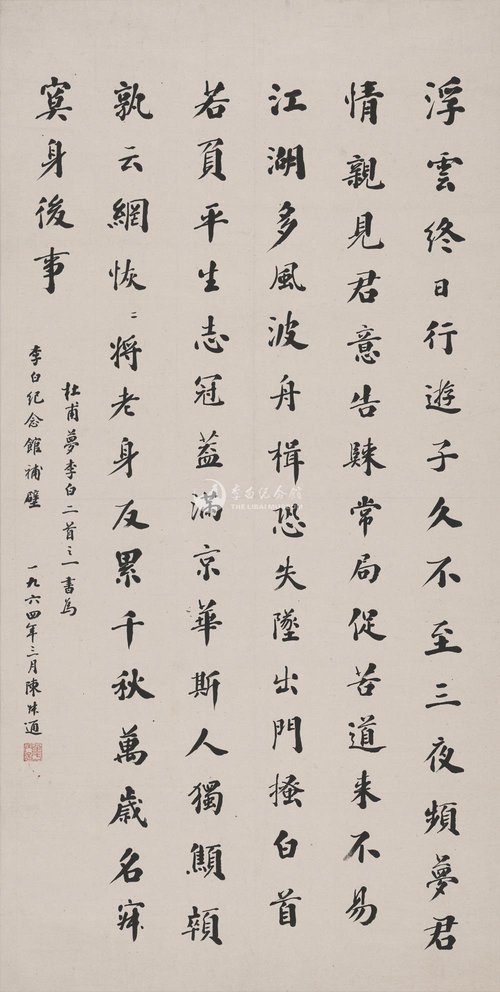 浮雲終日行遊子久不至三夜頻夢君
情親見君意告歸常局促苦道来不易
江湖多風波舟楫恐失墜出門搔白首
若負平生志冠蓋滿京華斯人獨顦顇
孰云網恢〻将老身反累千秋萬歲名寂
寞身後事
杜甫夢李白二首之一書為
李白纪念館補壁 一九六四年三月陳叔通
李白纪念館
THE LIBAI MUSEUM